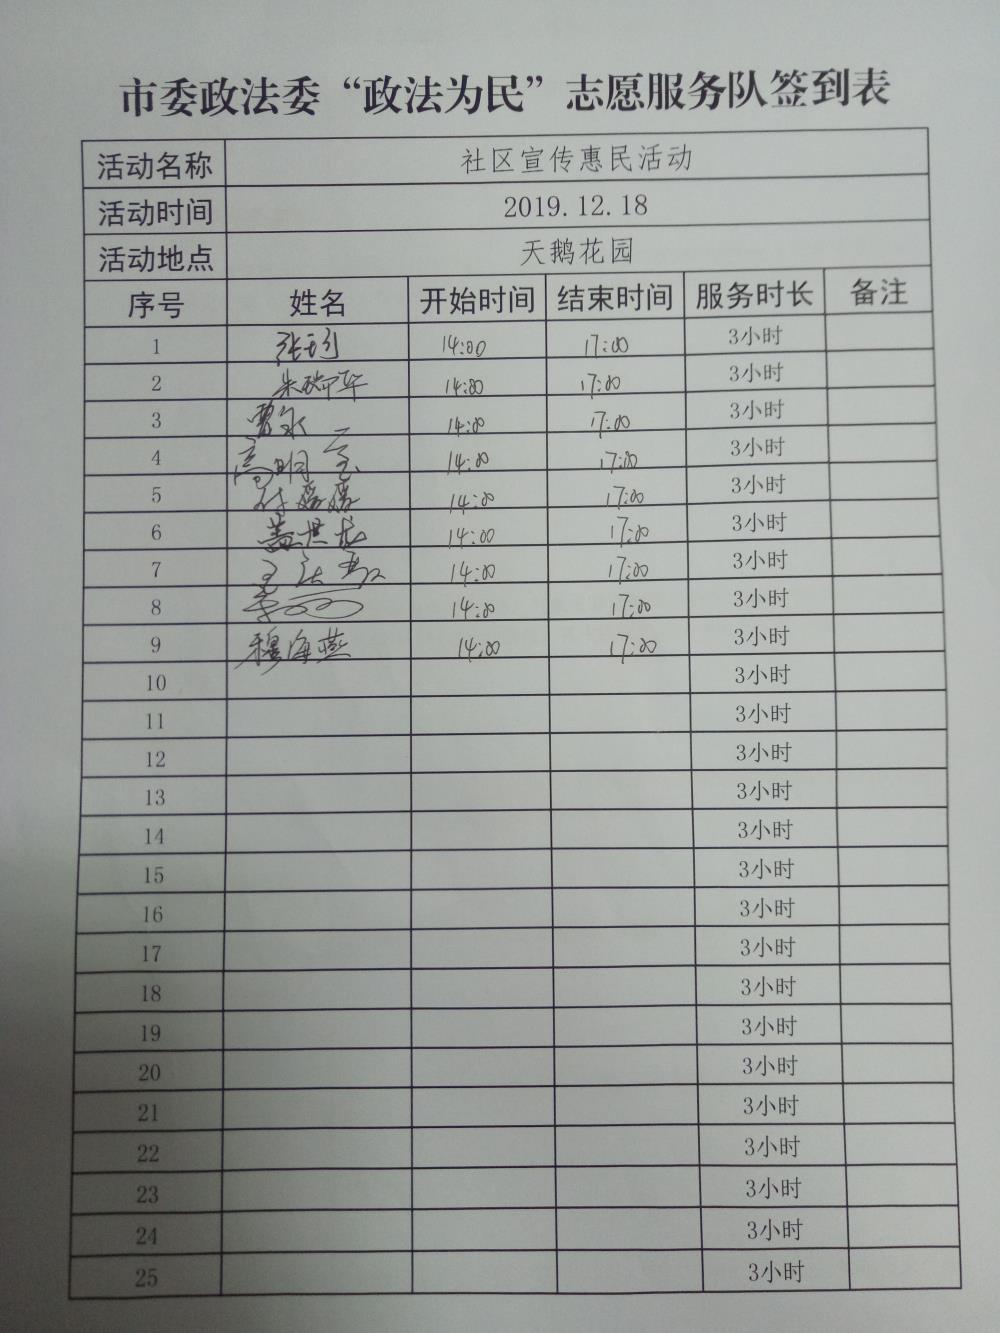 市委政法委“政法为民”志愿服务队签到表
活动名称 社区宣传惠民活动
活动时间 2019.12.18
活动地点 天鹅花园
序号 姓名 开始时间 结束时间 服务时长 备注
1 14:00 17:00 3小时
2 14:00 17:00 3小时
3 14:00 17:00 3小时
4 14:00 17:00 3小时
5 14:00 17:00 3小时
6 14:00 17:00 3小时
7 14:00 17:00 3小时
8 14:00 17:00 3小时
9 穆海燕 14:00 17:00 3小时
10 3小时
11 3小时
12 3小时
13 3小时
14 3小时
15 3小时
16 3小时
17 3小时
18 3小时
19 3小时
20 3小时
21 3小时
22 3小时
23 3小时
24 3小时
25 3小时